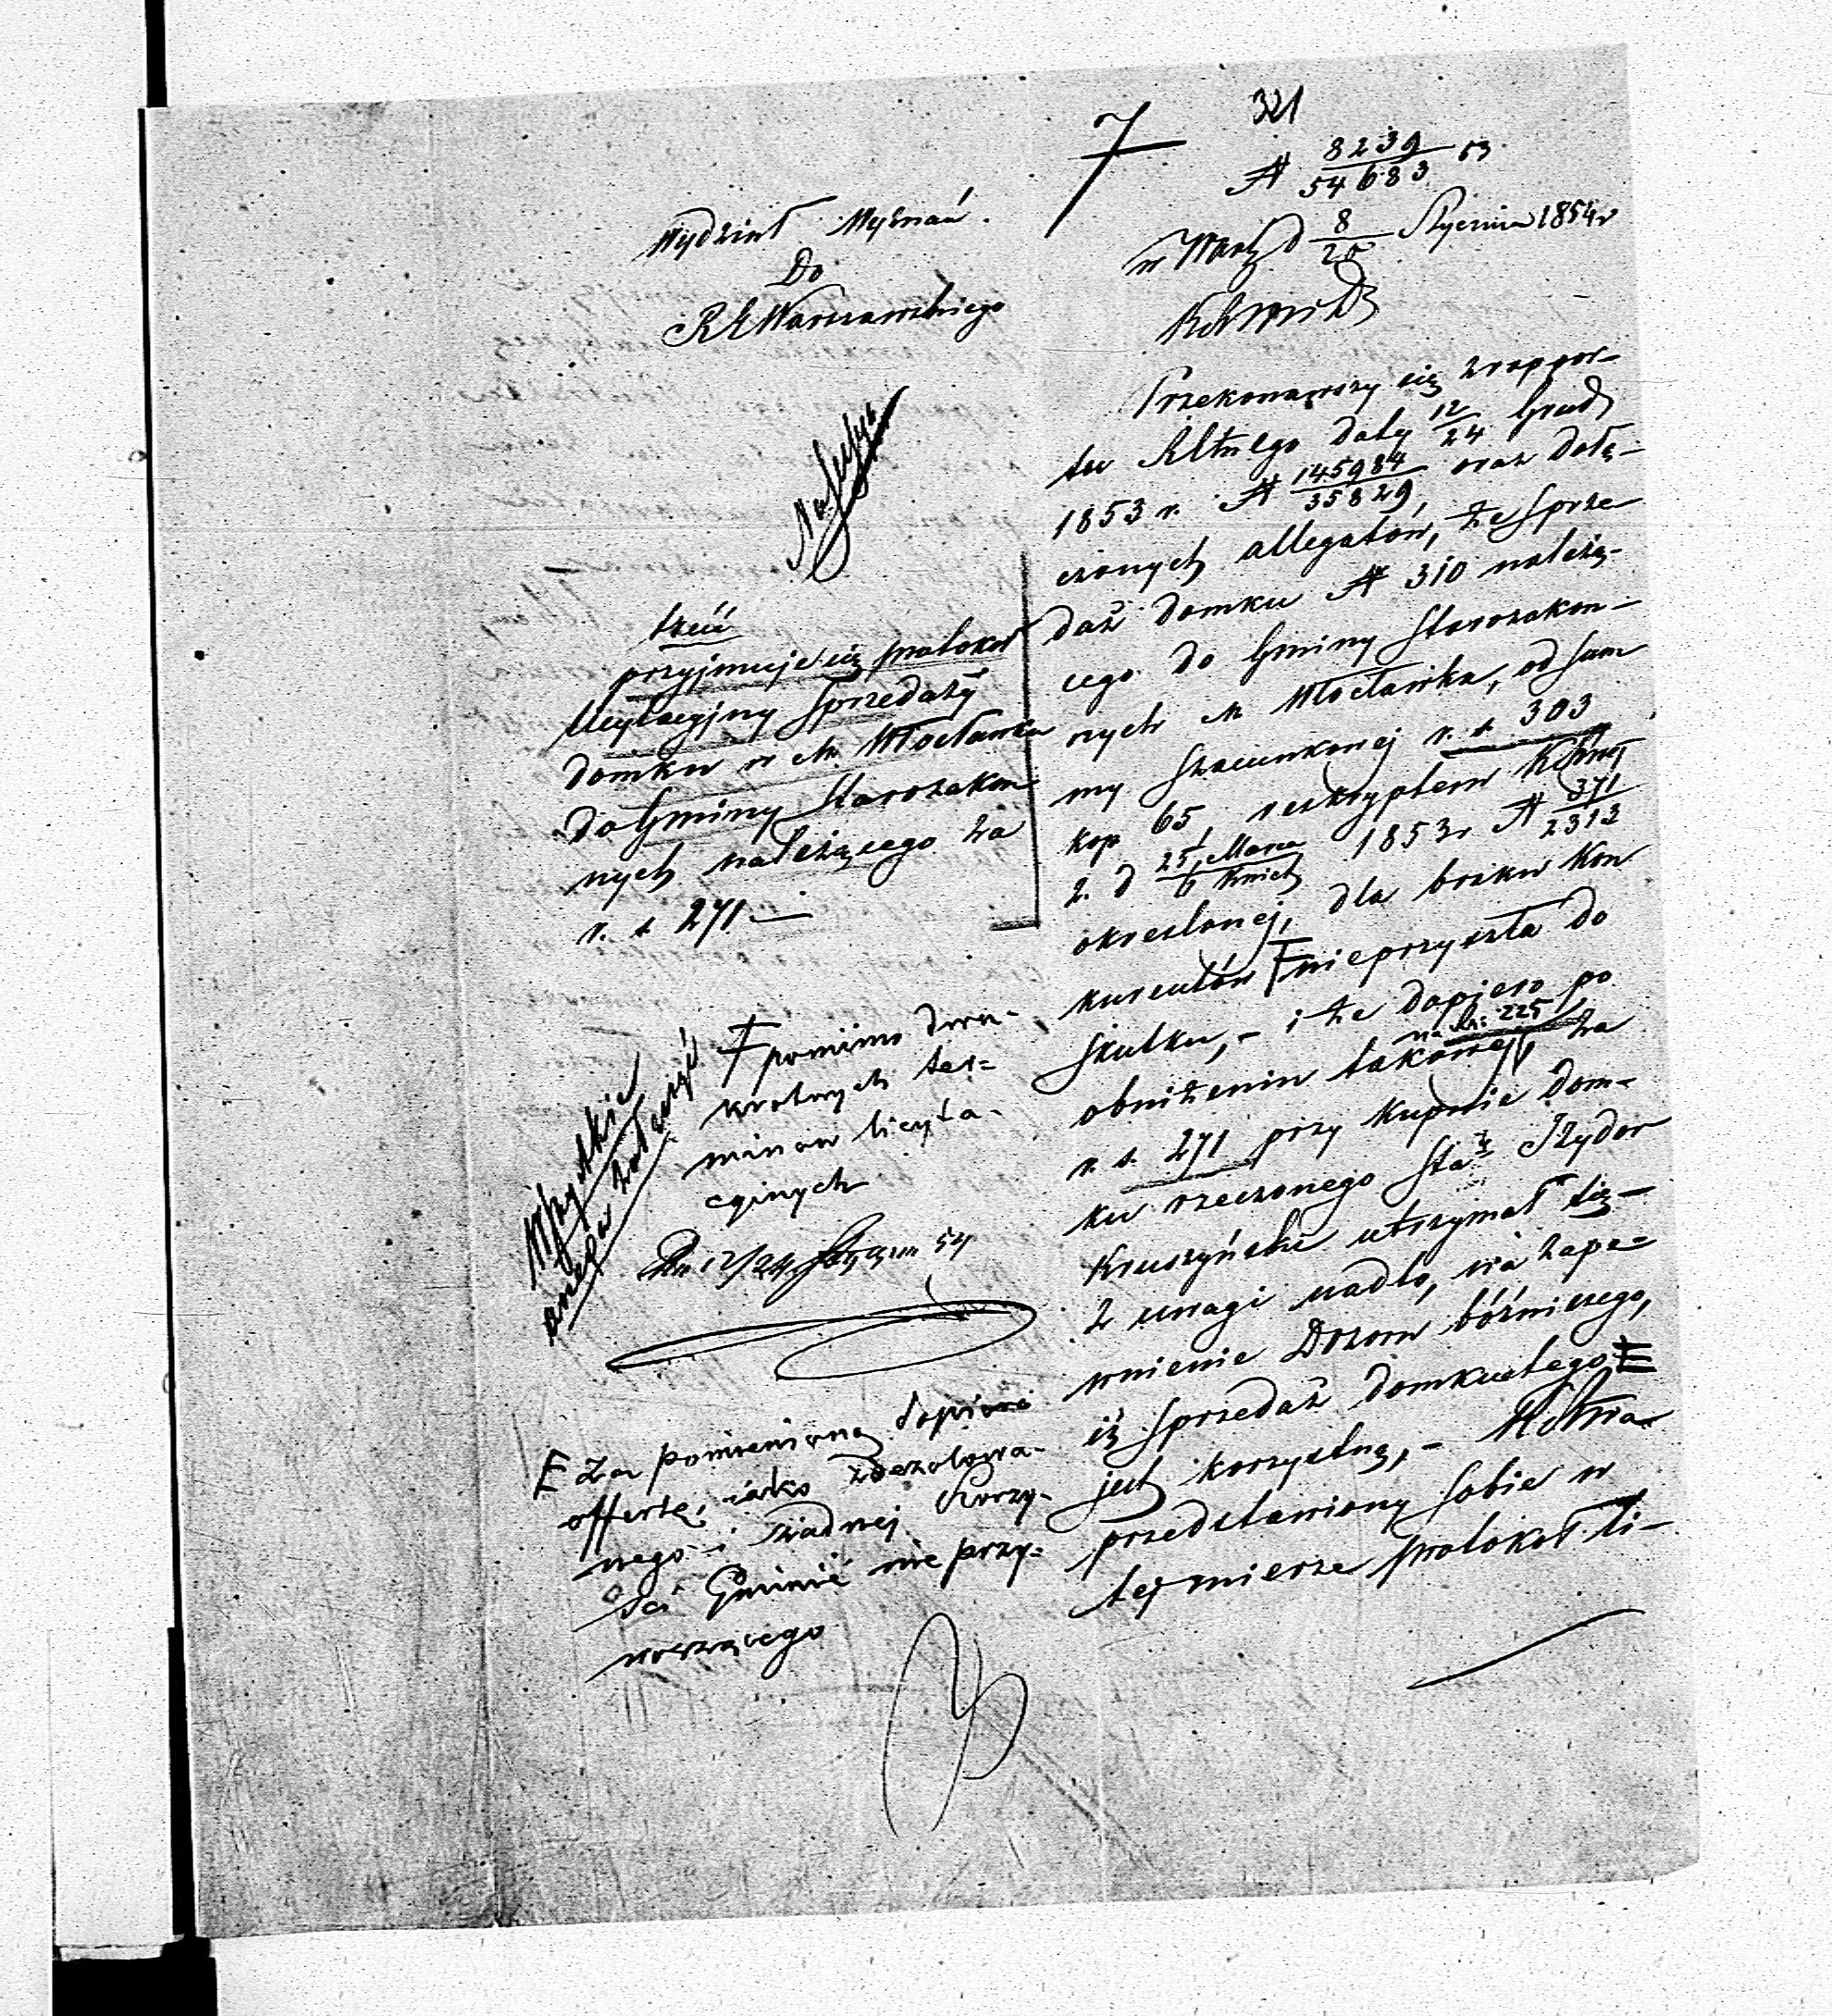 321
7
№ 8239/54683 53
w Warsz d 8/20 Stycznia 1854 r
Wydział Wyznań.
Do
RG Warszawskiego
Przekonawszy się z rappor-
tu RGlnego daty 12/24 Grud
1853 r. № 145984/35829, oraz dołą-
czonych allegatów, że sprze
daż domku № 310 należą-
cego do Gminy Starozakon-
nych M Włocławka, od sum
my szacunkowej r. s. 303
kop 65, reskryptem
z. d 25 Maja/6 Czerw 1853 r № 371/2313
określonej, dla braku kon
kurentów Ŧ nieprzyszła do
skutku, - i że dopiero po
obniżeniu takowej na rs: 225, za
r. s. 271 przy kupnie dom-
ku rzeczonego Sta Izydor
Kruszyński utrzymał się-
z uwagi nadto, na zape-
wnienie Dozoru bóżniczego,
iż sprzedaż domku tego E
jest korzystną, -
przedstawiony sobie w
tej mierze protokół li-
treść
przyjmuje się protokuł
licytacyjny sprzedaży
domku w M. Włocławku
do Gminy Starozakon
nych należącego za
r. s. 271 —
Ŧ pomimo dwu-
krotnych ter-
minów licyta-
cyjnych
12/24 Stycznia 54
E za pomienioną dopiero
offertę, jako zdezolowa-
nego i żadnej korzy-
ści Gminie nie przy-
noszącego